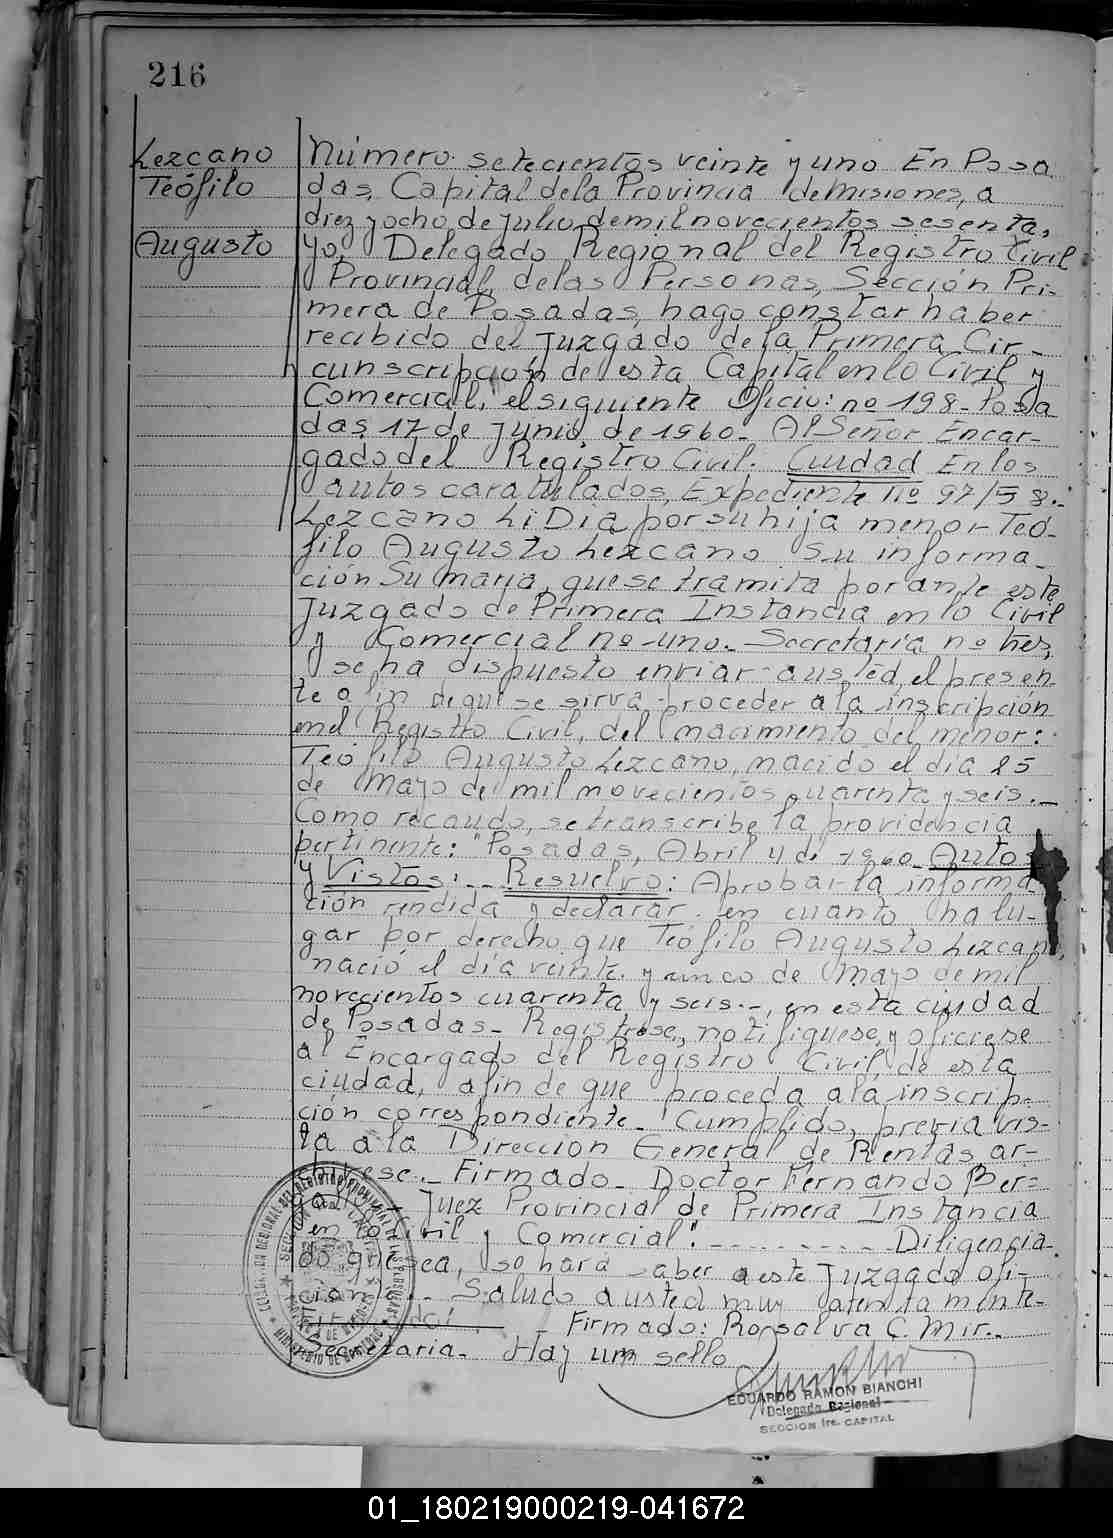 216
Lezcano
Teófilo
Augusto
Número setecientos veinte y uno En Posa
das, Capital de la Provincia de Misiones, a
diez y ocho de julio de mil novecientos sesenta,
yo, Delegado Regional del Registro Civil
Provincial de las Personas, Sección Pri-
mera de Posadas, hago constar haber
recibido del Juzgado de la Primera Cir-
cunscripción de esta Capital en lo Civil y
Comercial, el siguiente Oficio: nº 198- Posa
das, 17 de Junio, de 1960- Al Señor Encar-
gado del Registro Civil. Ciudad En los
autos caratulados, Expediente nº 97/58.-
Lezcano Lidia por su hija menor Teó-
filo Augusto Lezcano Su informa-
ción Sumaria, que se tramita por ante este
Juzgado de Primera Instancia en lo Civil
y Comercial nº uno- Secretaría nº tres,
se ha dispuesto enviar a usted, el presen-
te a fin de que se sirva proceder a la inscripción
en el Registro Civil, del nacimiento del menor:
Teófilo Augusto Lezcano, nacido el día 25
de Mayo de mil novecientos cuarenta y seis.-
Como recaudo, se transcribe la providencia
pertinente: "Posadas, Abril 4 de 1960- Autos
y Vistos:-- Resuelvo: Aprobar la informa
ción rendida y declarar en cuanto ha lu-
gar por derecho que Teófilo Augusto Lezcano,
nació el día veinte y cinco de Mayo de mil
novecientos cuarenta y seis.-, en esta ciudad
de Posadas- Regístrese, notifíquese, y ofíciese
al Encargado del Registro Civil, de esta
ciudad, a fin de que proceda a la inscrip-
ción correspondiente- Cumplido, previa vis-
ta a la Dirección General de Rentas, ar-
chívese.- Firmado- Doctor Fernando Ber-
Juez Provincial de Primera Instancia
en lo Civil y Comercial".---------- Diligencia-
do que sea, se hará saber a este Juzgado ofi-
ciante.- Saludo a usted muy atentamente-
- Firmado: Rosalva C. Mir.-
Secretaria- Hay un sello
EDUARDO RAMON BIANCHI
Delegado Regional
SECCION 1ra. CAPITAL
01_180219000219-041672